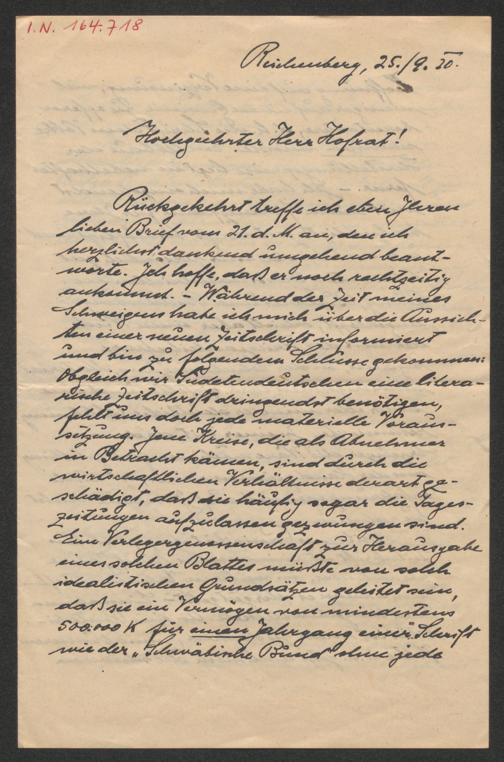 I.N. 164.718
Reichenberg, 25./9. 20.
Hochgeehrter Herr Hofrat!
Rückgekehrt treffe ich eben Ihren
lieben Brief vom 21. d. M. an, den ich
herzlichst dankend umgehend beant-
worte. Ich hoffe, daß er noch rechtzeitig
ankommt. – Während der Zeit meines
Schweigens habe ich mich über die Aussich-
ten einer neuen Zeitschrift informiert
und bin zu folgendem Schlusse gekommen:
Obgleich wir Sudetendeutschen eine litera-
rische Zeitschrift dringendst benötigen,
fehlt uns doch jede materielle Voraus-
setzung. Jene Kreise, die als Abnehmer
in Betracht kämen, sind durch die
wirtschaftlichen Verhältnisse derart ge-
schädigt, daß sie häufig sogar die Tages-
zeitungen aufzulassen gezwungen sind.
Eine Verlegergenossenschaft zur Herausgabe
eines solchen Blattes müßte von solch
idealistischen Grundsätzen geleitet sein,
daß sie ein Vermögen von mindestens
500.000 K für einen Jahrgang einer Schrift
wie der „Schwäbische Bund" ohne jede